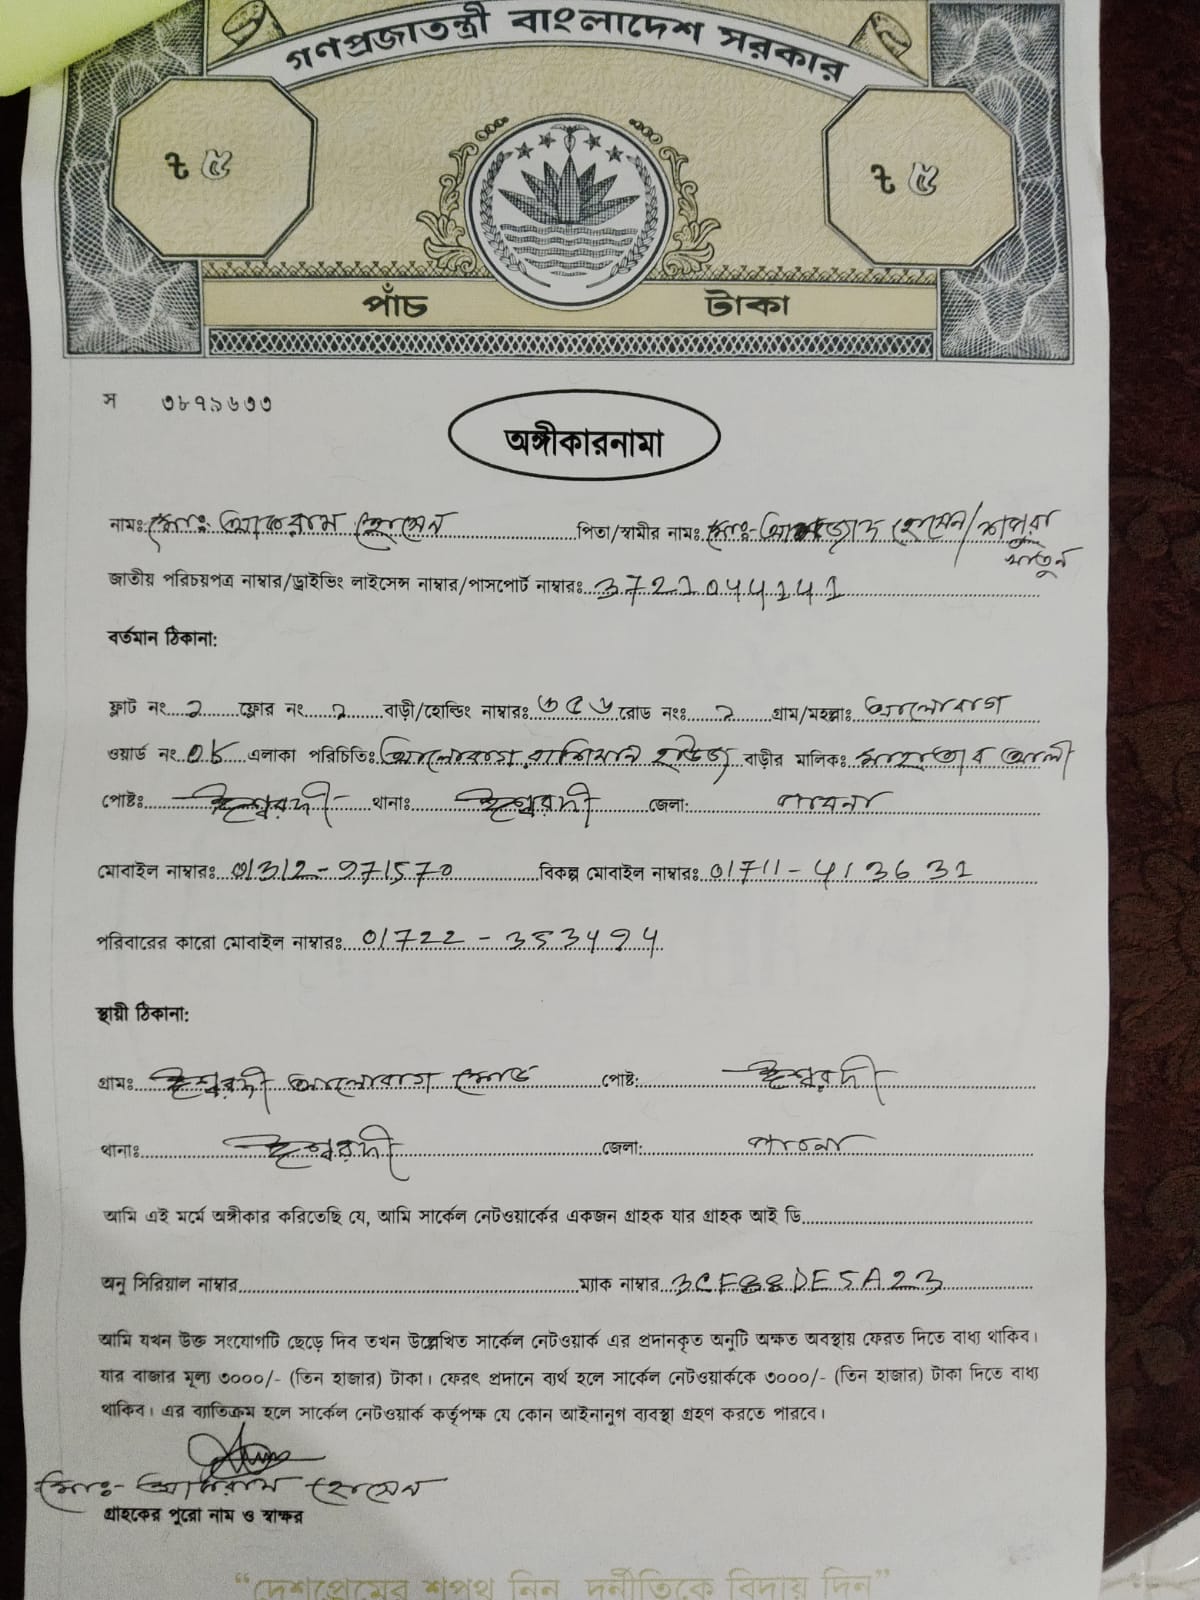 গণপ্রজাতন্ত্রী বাংলাদেশ সরকার
ট ৫ ট ৫
পাঁচ টাকা
স ৩৮৭৯৬৩৩
অঙ্গীকারনামা
নামঃ মোঃ হোসেন পিতা/স্বামীর নামঃ মোঃ- হোসেন/
খাতুন
জাতীয় পরিচয়পত্র নাম্বার/ড্রাইভিং লাইসেন্স নাম্বার/পাসপোর্ট নাম্বারঃ 3721044141
বর্তমান ঠিকানা:
ফ্লাট নং 2 ফ্লোর নং 2 বাড়ী/হোল্ডিং নাম্বারঃ ৩৫৬ রোড নংঃ 2 গ্রাম/মহল্লাঃ আলোবাগ
ওয়ার্ড নং এলাকা পরিচিতিঃ আলোবাগ বাড়ীর মালিকঃ আলী
পোষ্টঃ ঈশ্বরদী থানাঃ ঈশ্বরদী জেলা: পাবনা
মোবাইল নাম্বারঃ 01312-971570 বিকল্প মোবাইল নাম্বারঃ 01711-413631
পরিবারের কারো মোবাইল নাম্বারঃ 01722-353494
স্থায়ী ঠিকানা:
গ্রামঃ ঈশ্বরদী আলোবাগ মোড় পোষ্ট: ঈশ্বরদী
থানাঃ ঈশ্বরদী জেলা: পাবনা
আমি এই মর্মে অঙ্গীকার করিতেছি যে, আমি সার্কেল নেটওয়ার্কের একজন গ্রাহক যার গ্রাহক আই ডি
অনু সিরিয়াল নাম্বার ম্যাক নাম্বার 3CF88DE5A23
আমি যখন উক্ত সংযোগটি ছেড়ে দিব তখন উল্লেখিত সার্কেল নেটওয়ার্ক এর প্রদানকৃত অনুটি অক্ষত অবস্থায় ফেরত দিতে বাধ্য থাকিব।
যার বাজার মূল্য ৩০০০/- (তিন হাজার) টাকা। ফেরৎ প্রদানে ব্যর্থ হলে সার্কেল নেটওয়ার্ককে ৩০০০/- (তিন হাজার) টাকা দিতে বাধ্য
থাকিব। এর ব্যাতিক্রম হলে সার্কেল নেটওয়ার্ক কর্তৃপক্ষ যে কোন আইনানুগ ব্যবস্থা গ্রহণ করতে পারবে।
মোঃ- হোসেন
গ্রাহকের পুরো নাম ও স্বাক্ষর
“দেশপ্রেমের শপথ নিন দুর্নীতিকে বিদায় দিন”